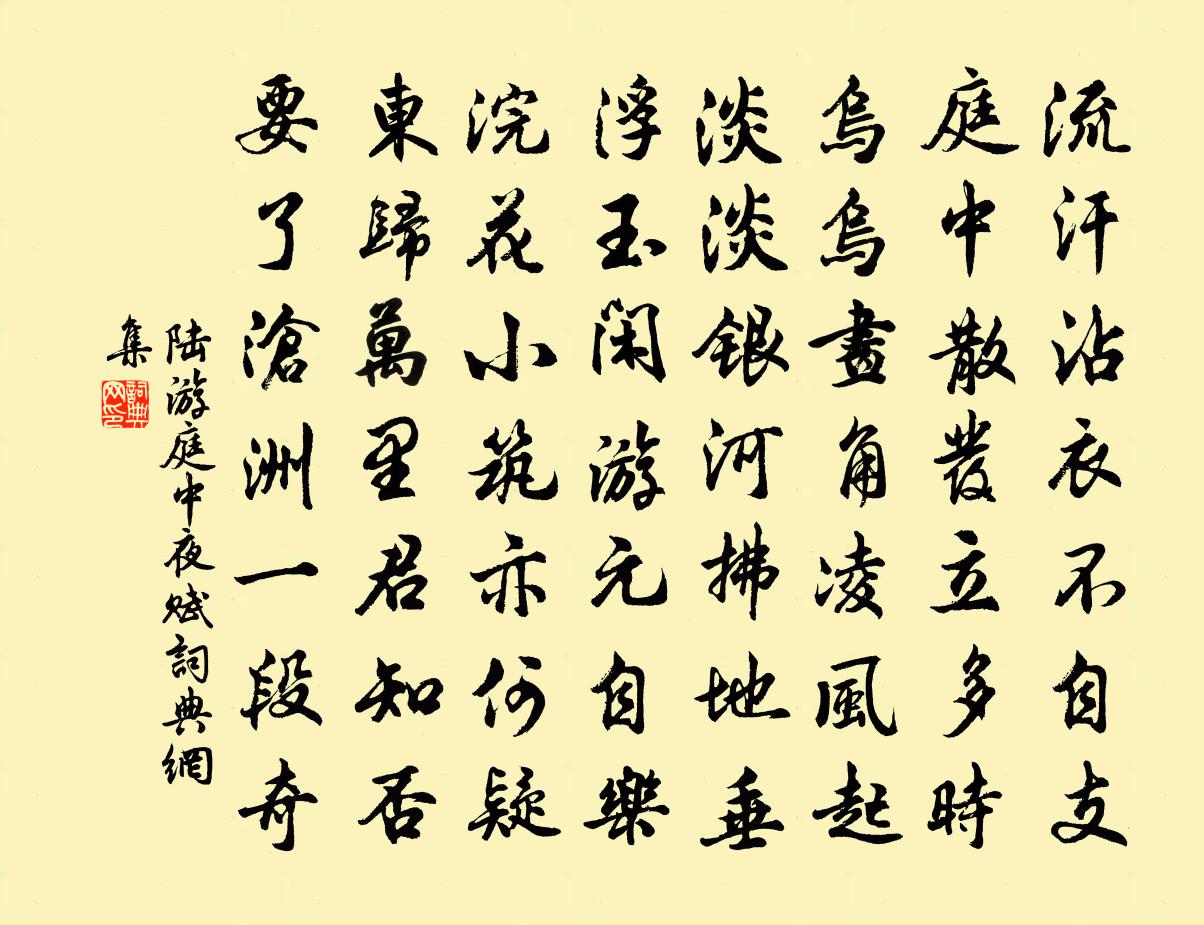 流汗沾衣不自支
庭中散發立多時
烏烏畫角凌風起
淡淡銀河拂地垂
浮玉閑游元自樂
浣花小筑亦何疑
東歸萬里君知否
要了滄洲一段奇
陆游庭中夜赋詞典網
集
詞典
网印